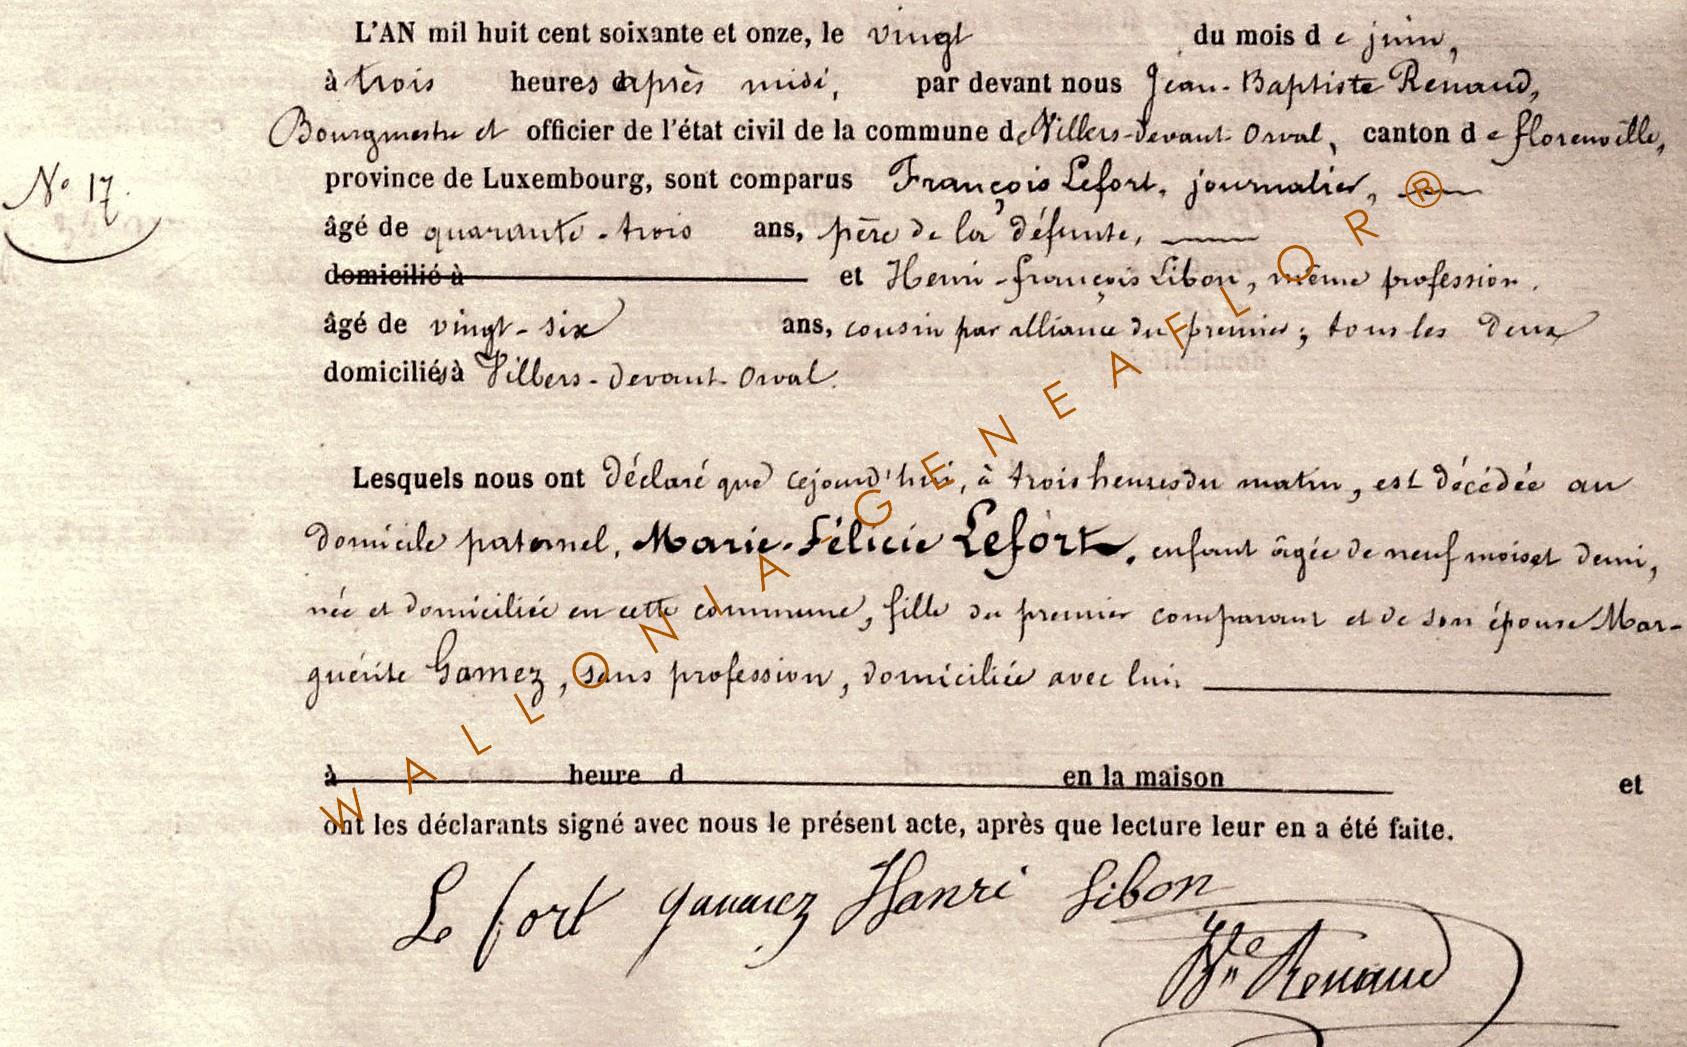 L'AN mil huit cent soixante et onze, le vingt du mois de juin,
à trois heures après midi, par devant nous Jean-Baptiste Renaud,
Bourgmestre et officier de l'état civil de la commune de Villers-devant-Orval, canton de florenville,
N° 17.
province de Luxembourg, sont comparus François Lefort, journalier,
âgé de quarante-trois ans, père de la défunte,
domicilié à et Henri-françois Libon, même profession,
âgé de vingt-six ans, cousin par alliance du premier; tous les deux
domiciliés à Villers-devant-Orval.
Lesquels nous ont déclaré que cejourd'hui, à trois heures du matin, est décédée au
domicile paternel, Marie-Félicie Lefort, enfant âgée de neuf mois et demi,
née et domiciliée en cette commune, fille du premier comparant et de son épouse Mar-
guérite Gamez, sans profession, domiciliée avec lui.
à heure d en la maison et
ont les déclarants signé avec nous le présent acte, après que lecture leur en a été faite.
Le fort Hanri Libon
Renaud
WALLONIA GENEAFLOR®